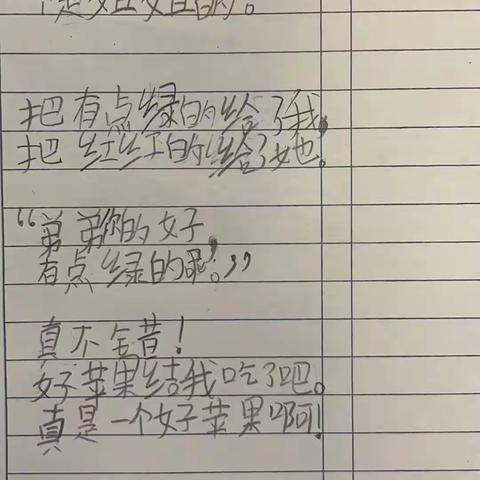 把有点绿的给了我，
把红红的给了她。
“弟弟你的好
有点绿的呢。”
真不错！
好苹果给我吃了吧。
真是一个好苹果啊！